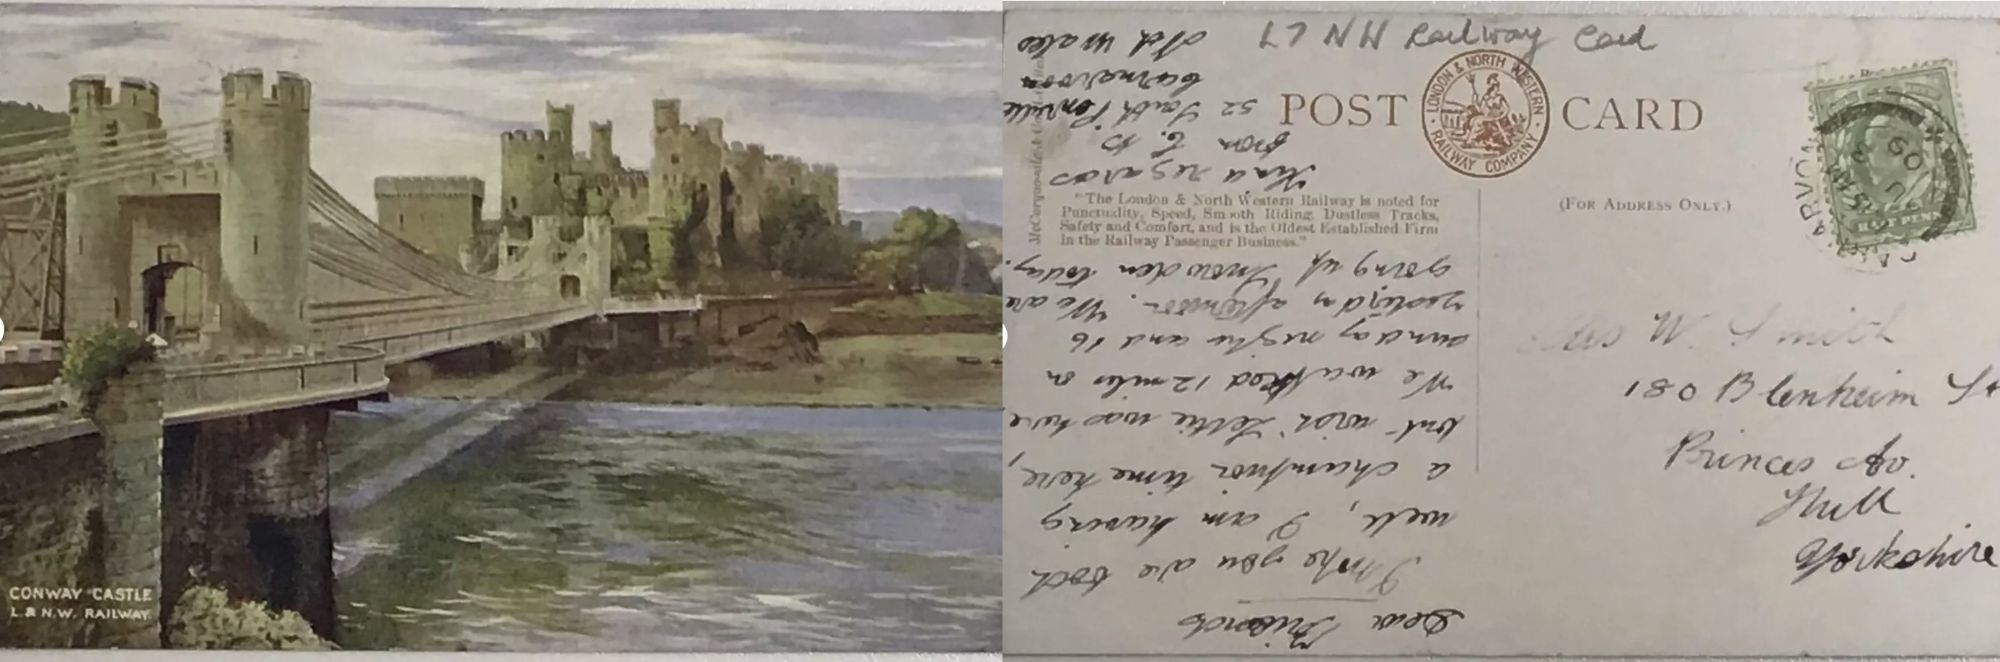 CONWAY CASTLE
L. & N.W. RAILWAY.
L7 NW Railway Card
POST CARD
LONDON & NORTH WESTERN RAILWAY COMPANY
"The London & North Western Railway is noted for
Punctuality, Speed, Smooth Riding, Dustless Tracks,
Safety and Comfort, and is the Oldest Established Firm
in the Railway Passenger Business."
(FOR ADDRESS ONLY.)
McCorquodale & Co.
CARNARVON
HALF PENNY
W. Smith
180 Blenheim St
Princes Av.
Hull
Yorkshire
Dear Friends
I hope you are both
well, I am having
a champion time here,
but wish Lettie was here,
We walked 12 miles on
sunday night and 16
yesterday afternoon. We are
going up Snowden today.
Kind regards
from E. B
52 South Penrallt
Carnarvon
Nth Wales